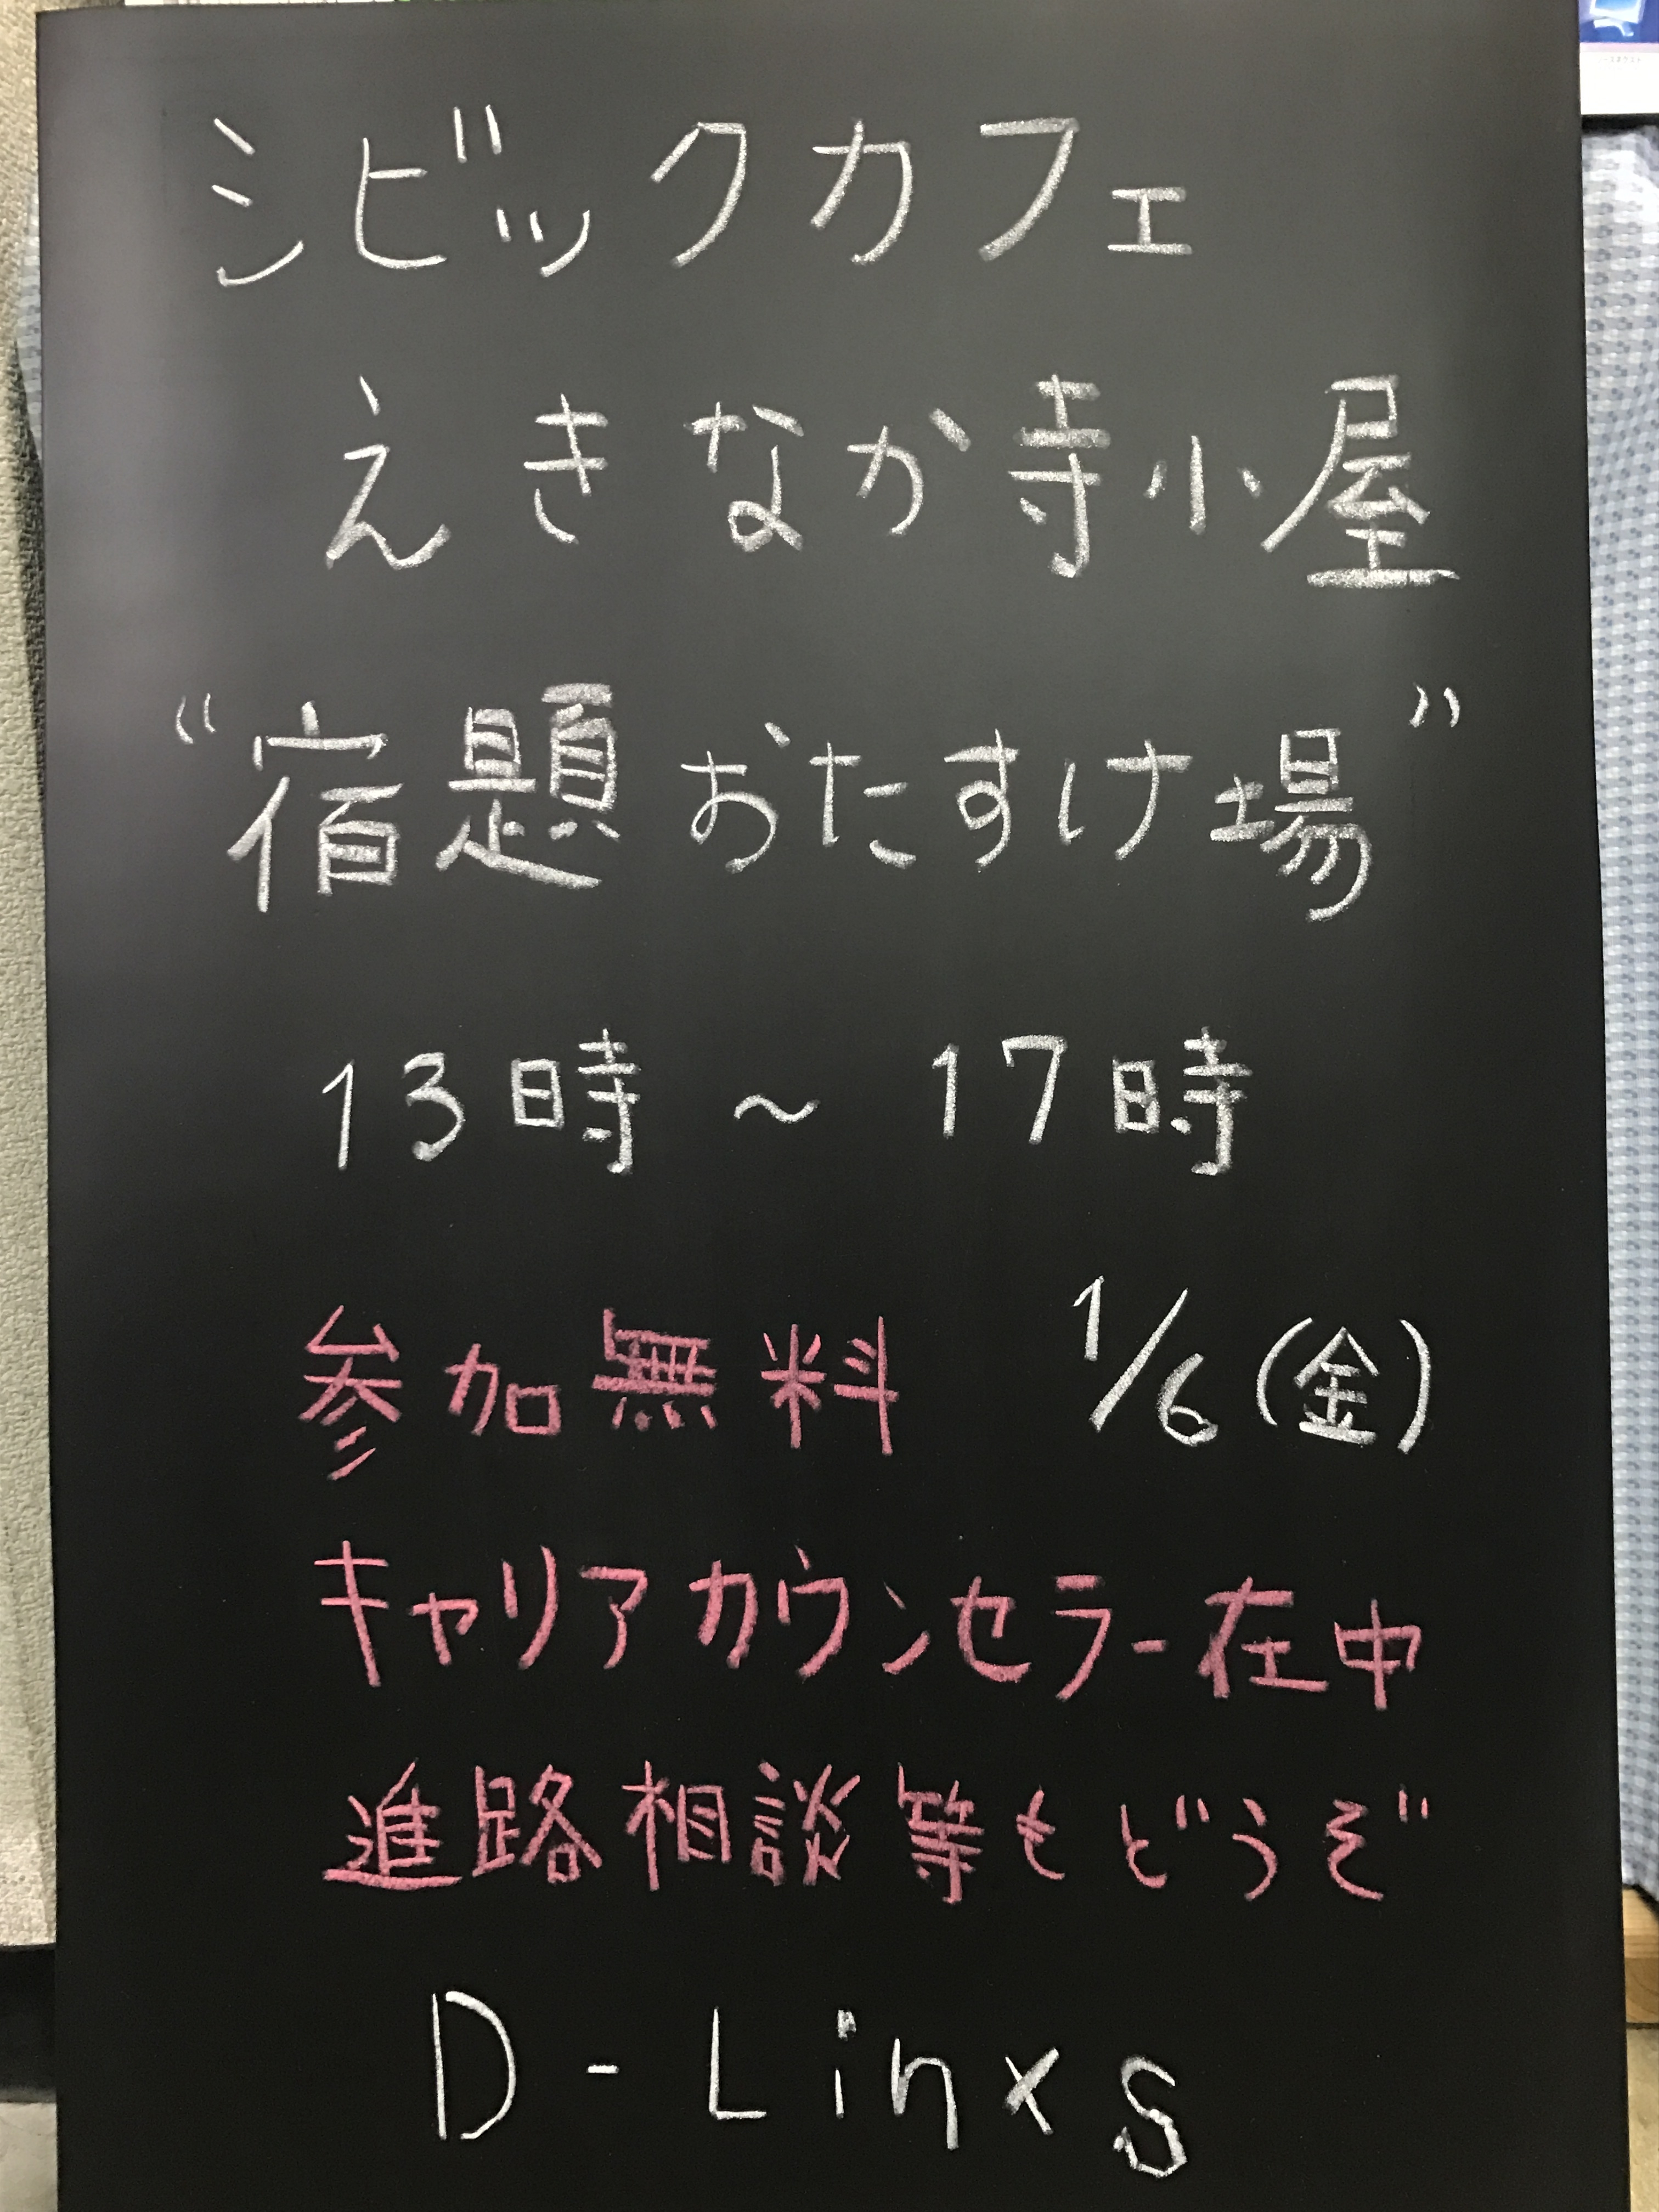 シビックカフェ
えきなか寺小屋
“宿題おたすけ場”
13時 ~ 17時
参加無料 1/6(金)
キャリアカウンセラー在中
進路相談等もどうぞ
D-Linxs